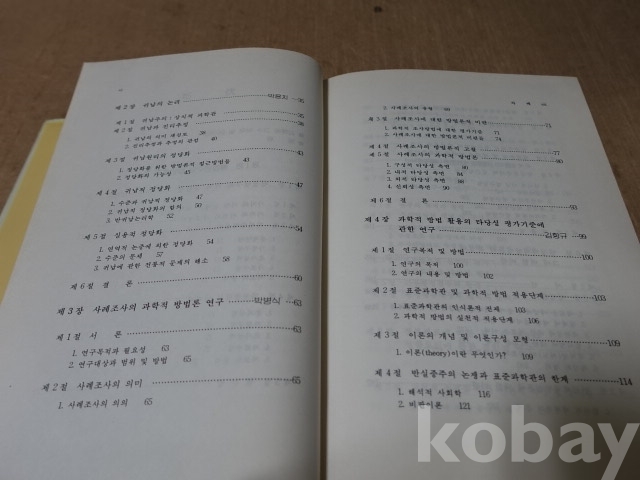 제2장 귀납의 논리 박용치 35
제1절 귀납주의: 상식적 과학관 35
제2절 귀납과 진리주장 38
1. 귀납의 의미 38
2. 진리주장과 추정의 관점 40
제3절 귀납원리의 정당화 43
1. 정당화를 위한 방법론적 접근방법들 43
2. 정당화의 가능성 45
제4절 귀납적 정당화 47
1. 수준과 귀납적 정당화 47
2. 귀납적 정당화의 함의 50
3. 반귀납논리학 52
제5절 실용적 정당화 54
1. 연역적 논증에 의한 정당화 54
2. 수준의 문제 57
3. 귀납에 관한 전통적 문제의 해소 58
제6절 결 론 60
제3장 사례조사의 과학적 방법론 연구 박병식 63
제1절 서 론 63
1. 연구목적과 필요성 63
2. 연구대상과 범위 및 방법 65
제2절 사례조사의 의미 65
1. 사례조사의 의의 65
2. 사례조사의 목적
제3절 사례조사에 대한 방법론적 비판 71
1. 과학적 조사방법에 대한 평가기준 71
2. 사례조사에 대한 방법론적 비판들 74
제4절 사례조사의 방법론적 모형 77
제5절 사례조사의 과학적 방법론 80
1. 구성적 타당성 측면
2. 내적 타당성 측면
3. 외적 타당성 측면
4. 신뢰성 측면
제6절 결 론 93
제4장 과학적 방법 활용의 타당성 평가기준에
관한 연구 99
제1절 연구목적 및 방법 100
1. 연구의 목적 100
2. 연구의 내용 및 방법 102
제2절 표준과학관 및 과학적 방법 적용단계 103
1. 표준과학관의 인식론적 전제 103
2. 과학적 방법의 실천적 적용단계 106
제3절 이론의 개념 및 이론구성 모형 109
1. 이론(theory)이란 무엇인가? 109
제4절 반실증주의 논쟁과 표준과학관의 한계 114
1. 해석적 사회학 116
2. 비판이론 121
kobay